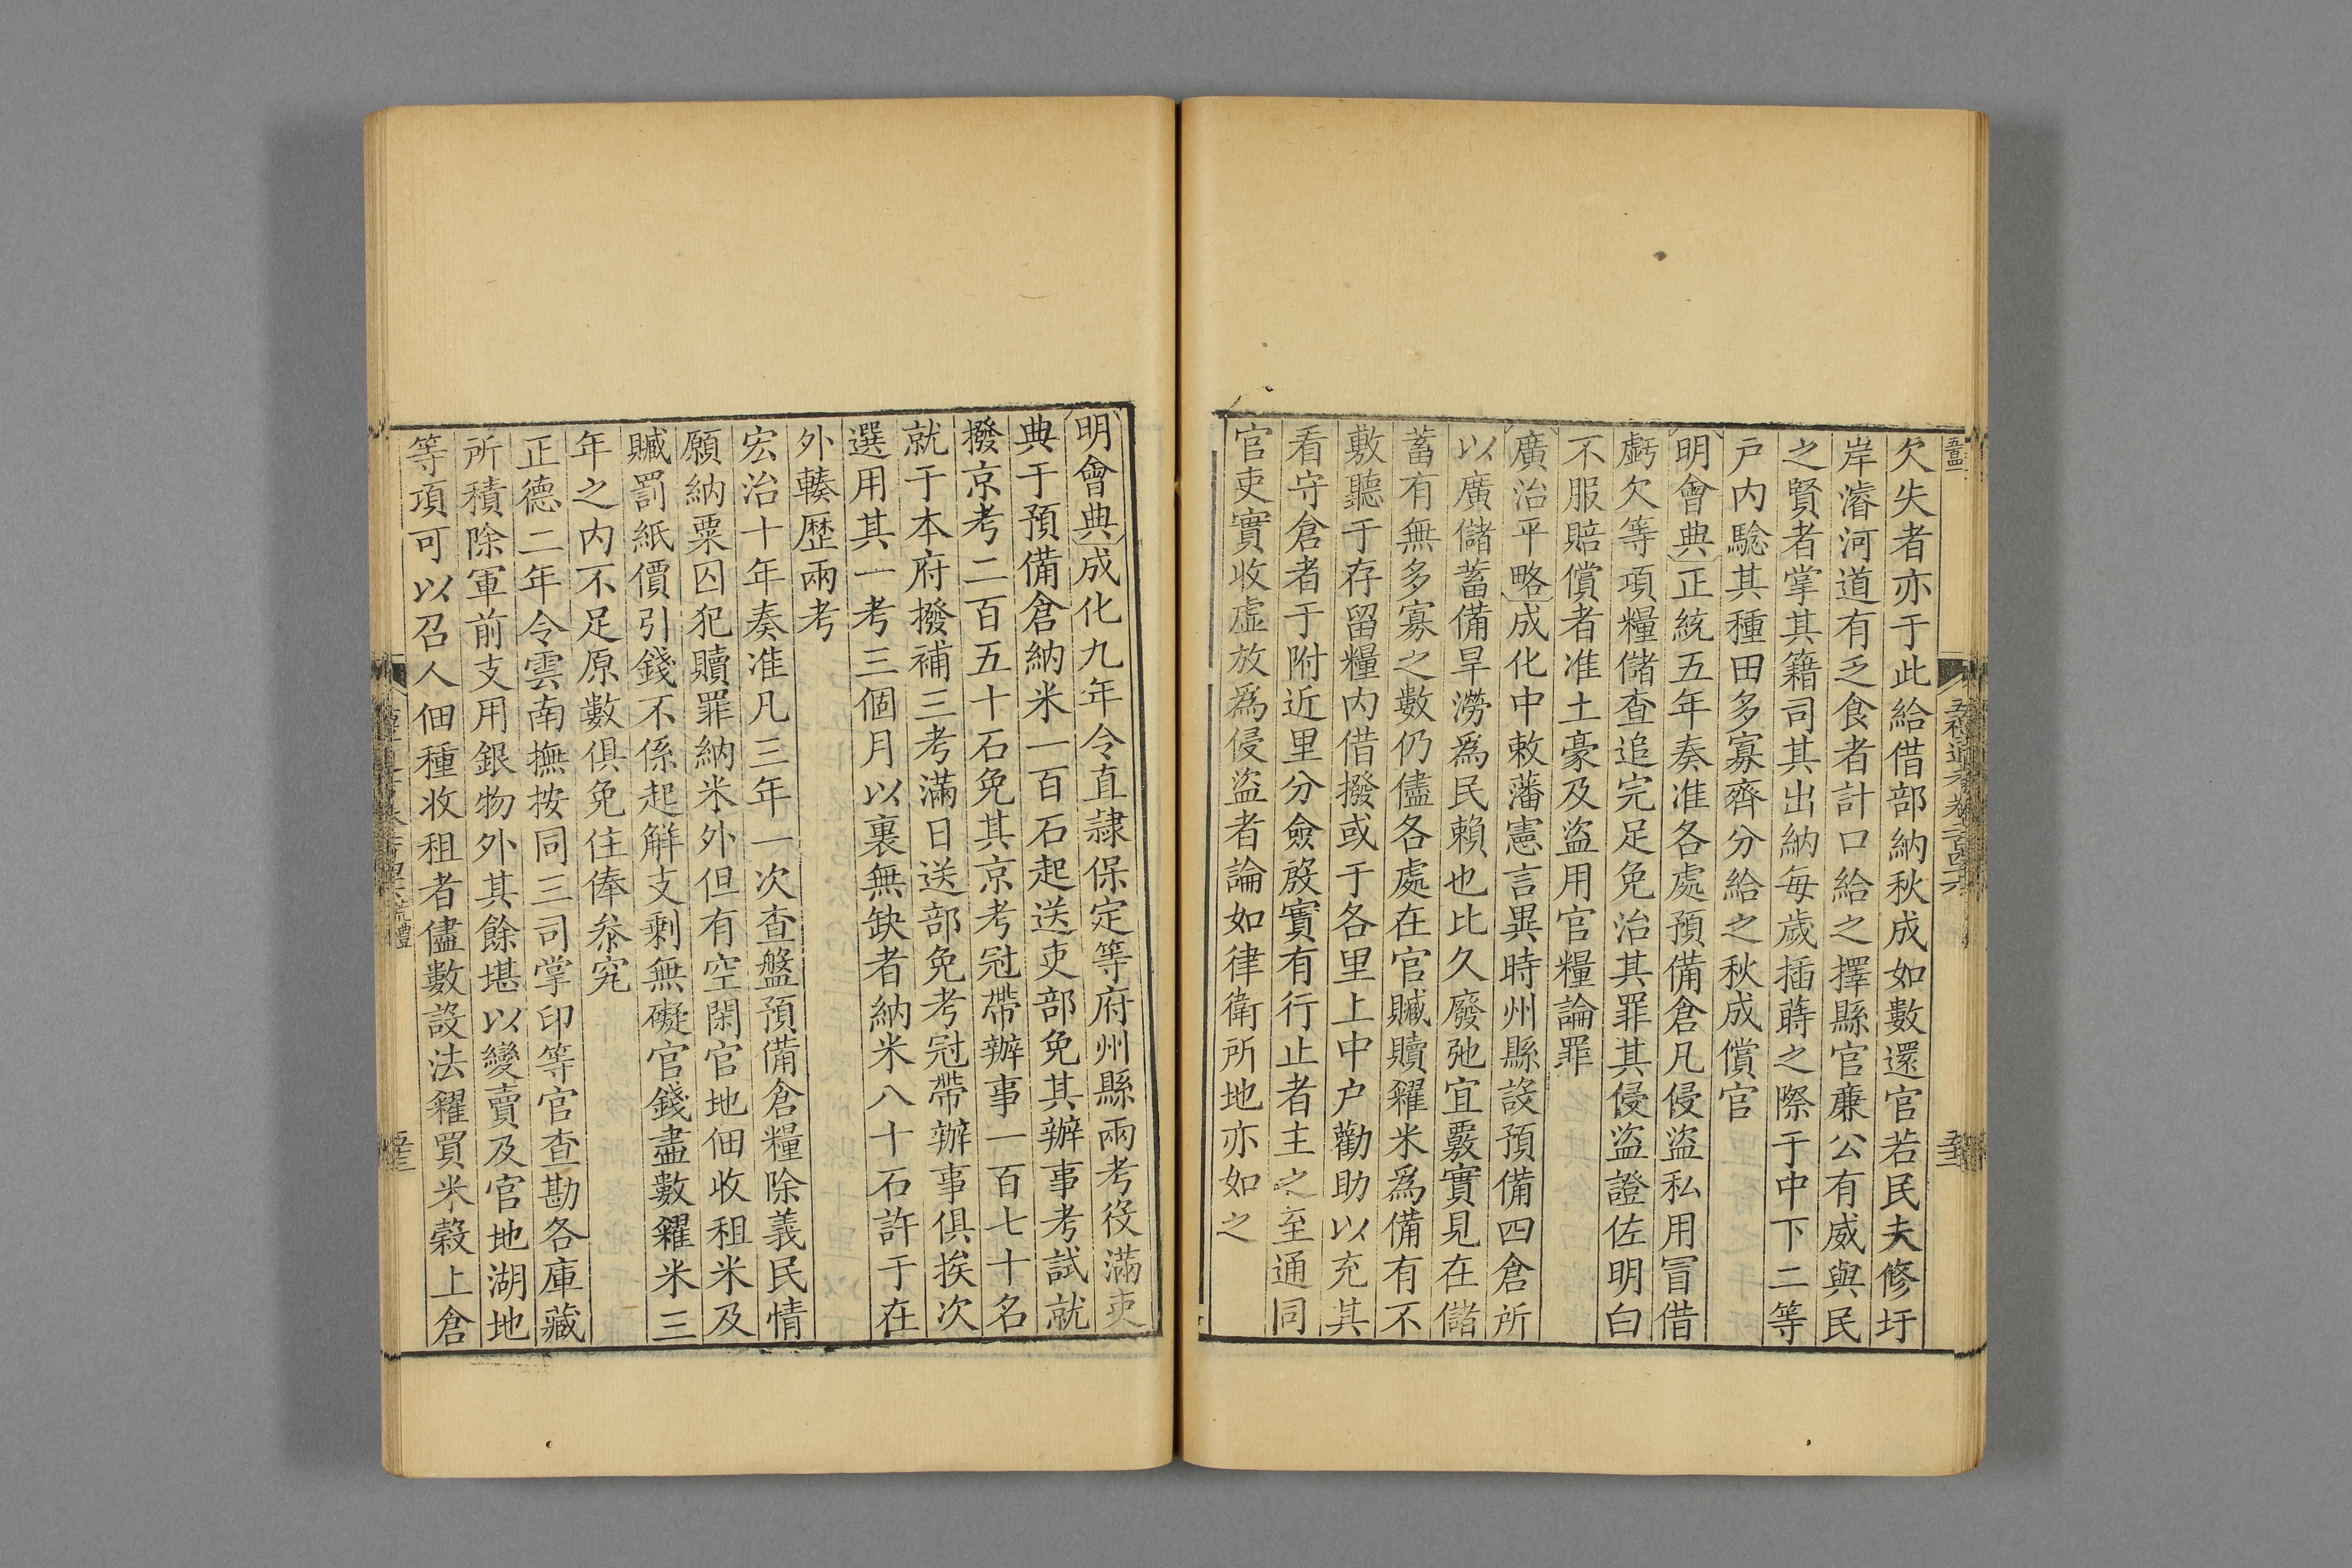 欠失者亦于此給借部納秋成如數還官若民夫修圩
岸濬河道有乏食者計口給之擇縣官廉公有威與民
之賢者掌其籍司其出納每歲插蒔之際于中下二等
戶內驗其種田多寡齊分給之秋成償官
明會典正統五年奏准各處預備倉凡侵盜私用冒借
虧欠等項糧儲查追完足免治其罪其侵盜證佐明白
不服賠償者准土豪及盜用官糧論罪
廣治平略成化中敕藩憲言異時州縣設預備四倉所
以廣儲蓄備旱澇爲民賴也比久廢弛宜覈實見在儲
蓄有無多寡之數仍儘各處在官贓贖糴米爲備有不
敷聽于存留糧內借撥或于各里上中户勸助以充其
看守倉者于附近里分僉殷實有行止者主之至通同
官吏實收虛放爲侵盜者論如律衛所地亦如之
明會典成化九年令直隷保定等府州縣兩考役滿吏
典于預備倉納米一百石起送吏部免其辦事考試就
撥京考二百五十石免其京考冠帶辦事一百七十名
就于本府撥補三考滿日送部免考冠帶辦事俱挨次
選用其一考三個月以裏無缺者納米八十石許于在
外轃歷兩考
宏治十年奏准凡三年一次查盤預備倉糧除義民情
願納粟囚犯贖罪納米外但有空閑官地佃收租米及
贓罰紙價引錢不係起解支剩無礙官錢盡數糴米三
年之內不足原數俱免住俸叅究
正德二年令雲南撫按同三司掌印等官查勘各庫藏
所積除軍前支用銀物外其餘堪以變賣及官地湖地
等項可以召人佃種收租者儘數設法糴買米穀上倉